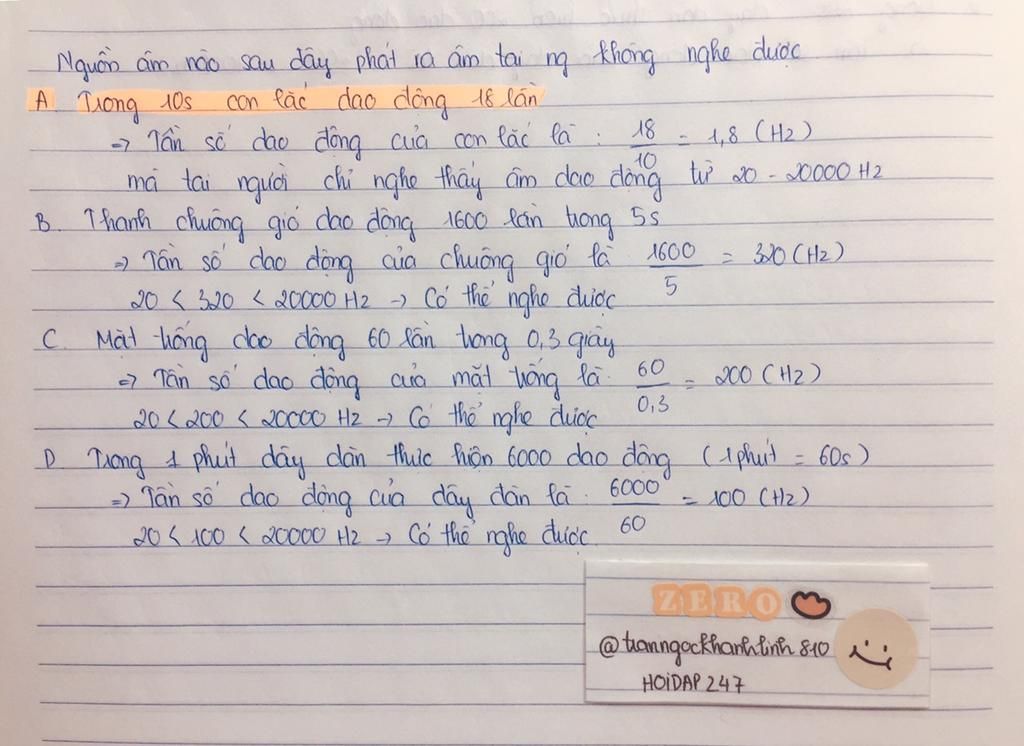 Nguồn âm nào sau đây phát ra âm tai ng không nghe được
A. Trong 10s con lắc dao động 18 lần
=> Tần số dao động của con lắc là : 18/10 = 1,8 (Hz)
mà tai người chỉ nghe thấy âm dao động từ 20 - 20000 Hz
B. Thanh chuông gió dao động 1600 lần trong 5s
=> Tần số dao động của chuông gió là 1600/5 = 320 (Hz)
20 < 320 < 20000 Hz → Có thể nghe được
C. Mặt trống dao động 60 lần trong 0,3 giây
=> Tần số dao động của mặt trống là 60/0,3 = 200 (Hz)
20 < 200 < 20000 Hz → Có thể nghe được
D. Trong 1 phút dây đàn thực hiện 6000 dao động (1 phút = 60s)
=> Tần số dao động của dây đàn là : 6000/60 = 100 (Hz)
20 < 100 < 20000 Hz → Có thể nghe được
ZERO
@tranngockhanhlinh810
HOIDAP247